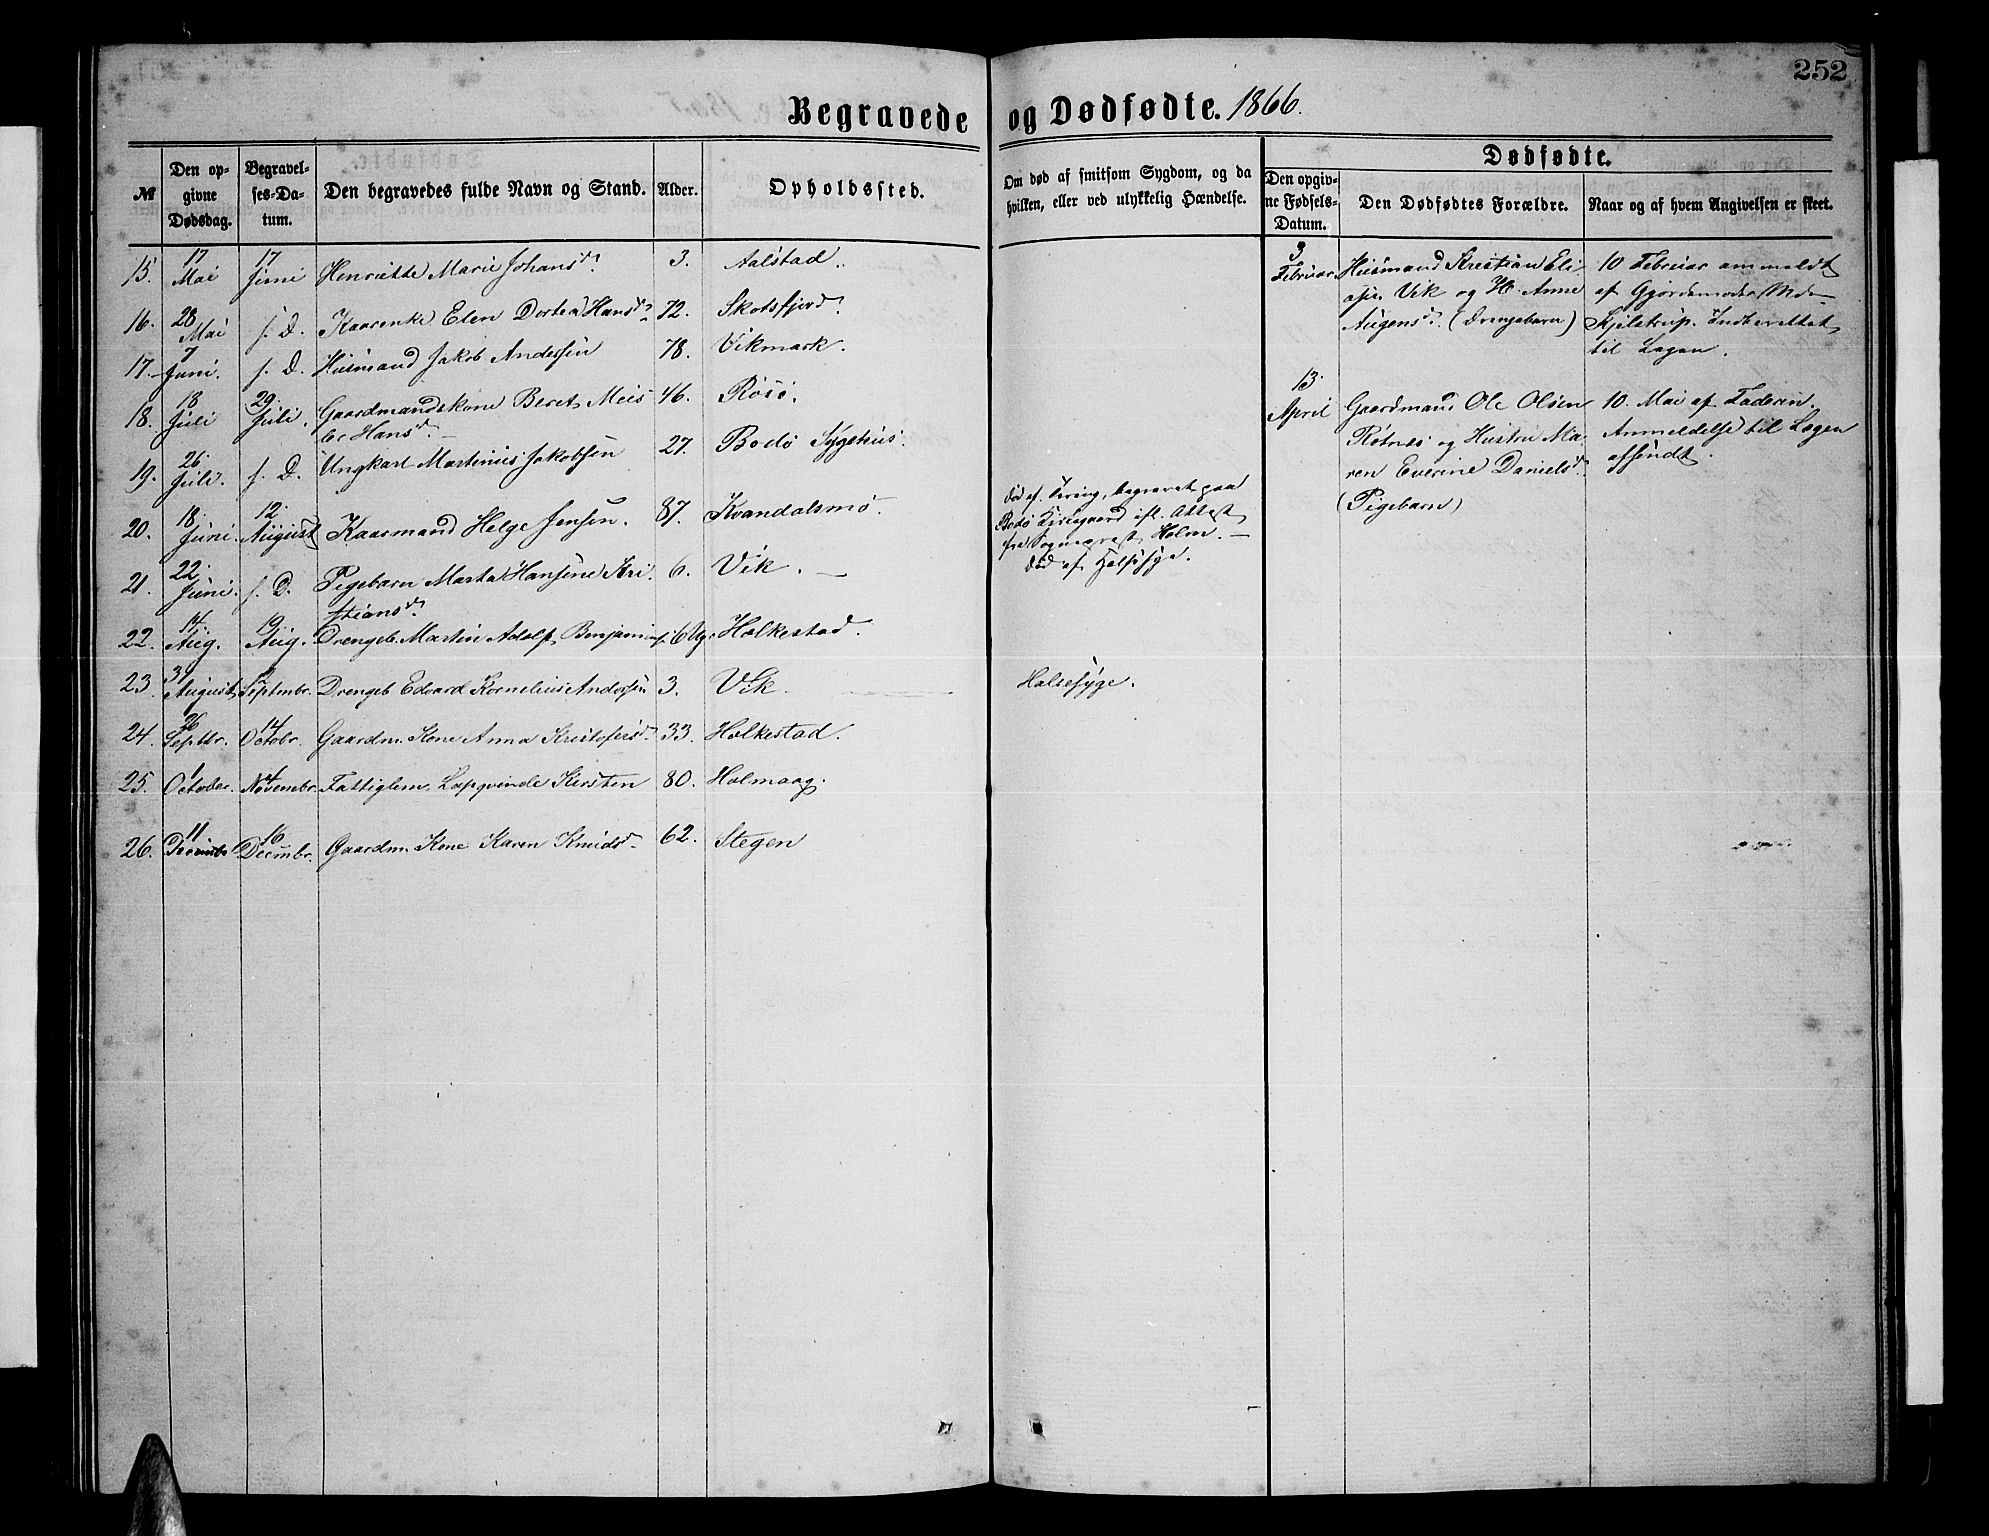 252
Begravede og Dødfødte. 1866.
№ Den opgivne Dødsdag. Begravelses-Datum. Den begravedes fulde Navn og Stand. Alder. Opholdssted.
Om død af smitsom Sygdom, og da hvilken, eller ved ulykkelig Hændelse.
Dødfødte.
Den opgivne Fødsels-Datum. Den Dødfødtes Forældre. Naar og af hvem Angivelsen er skeet.
15. 17 Mai 17 Juni Henriette Marie Johansd. 3. Aalstad.
16. 28 Mai s. D. Kaarenke Elen Dortea Hansd. 72. Skotsfjord.
17. 7 Juni. s. D. Husmand Jakob Andersen 78. Vikmark.
18. 18 Juli 29 Juli. Gaardmandskone Beret Meis
ler Hansd. 46. Røsø.
19. 26 Juli. s. D. Ungkarl Martinus Jakobsen 27. Bodø Sygehus.
20. 18 Juni. 12 August Kaarmand Helge Jensen. 87. Kvandalsmo.
21. 22 Juni. s. D. Pigebarn Marta Hansine Kri
stiansd. 6. Vik.
22. 14 Aug. 19 Aug. Drengeb. Martin Adolf Benjamins. 6 Ug. Holkestad.
23. 31 August Septmbr. Drengeb Edvard Kornelius Andersen 3. Vik.
24. 26 Septbr. 14 Octobr. Gaardm. Kone Anna Kristofersd. 33. Holkestad.
25. 1 October. 4 Novembr. Fattiglem. Lapqvinde Kirsten 80. Holmaag.
26. 11 Decembr 16 Decmbr. Gaardm. Kone Karen Knudsd. 62. Stegen
død af Tæring, begravet paa
Bodø Kirkegaard ifl. Attest
fra Sognepræst Holm.
død af Halssyge.
Halssyge.
3 Februar Husmand Kristian Eli
Vik og H. Anne
Augensd. (Drengebarn)
10 Februar anmeldt
af Gjordemoder Md.
Kjelstrup. Indberettet
til Lægen.
13 April Gaardmand Ole Olsen
Røtnes og Hustru Ma
ren Everine Danielsd.
(Pigebarn)
10. Mai af Faderen.
Anmeldelse til Lægen
afsendt.